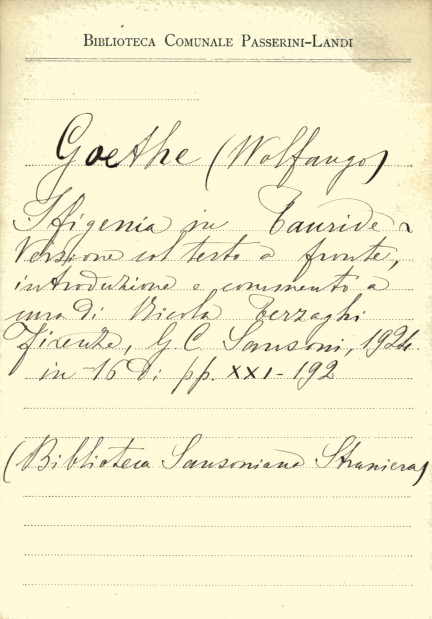 BIBLIOTECA COMUNALE PASSERINI-LANDI
Goethe (Wolfango)
Ifigenia in Tauride
Versione col testo a fronte,
introduzione e commento a
cura di Nicola Terzaghi
Firenze, G. C. Sansoni, 1924.
in-16 di pp. XXI-192
(Biblioteca Sansoniana Straniera)